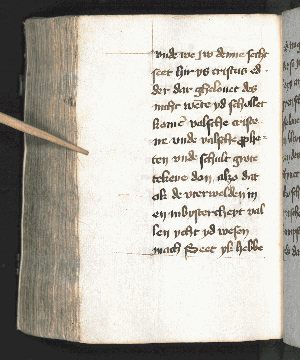 vnde we jw denne secht
seet hir ys cristus ed
der dar ghelouet des
nicht were yd schollet
komē valsche criste
ne vnde valsche prophe-
ten vnde schult grote
tekene don also dat
ok de vterwelden in
en in bysterheyt val
len ycht yd wesen
mach Seet yk hebbe